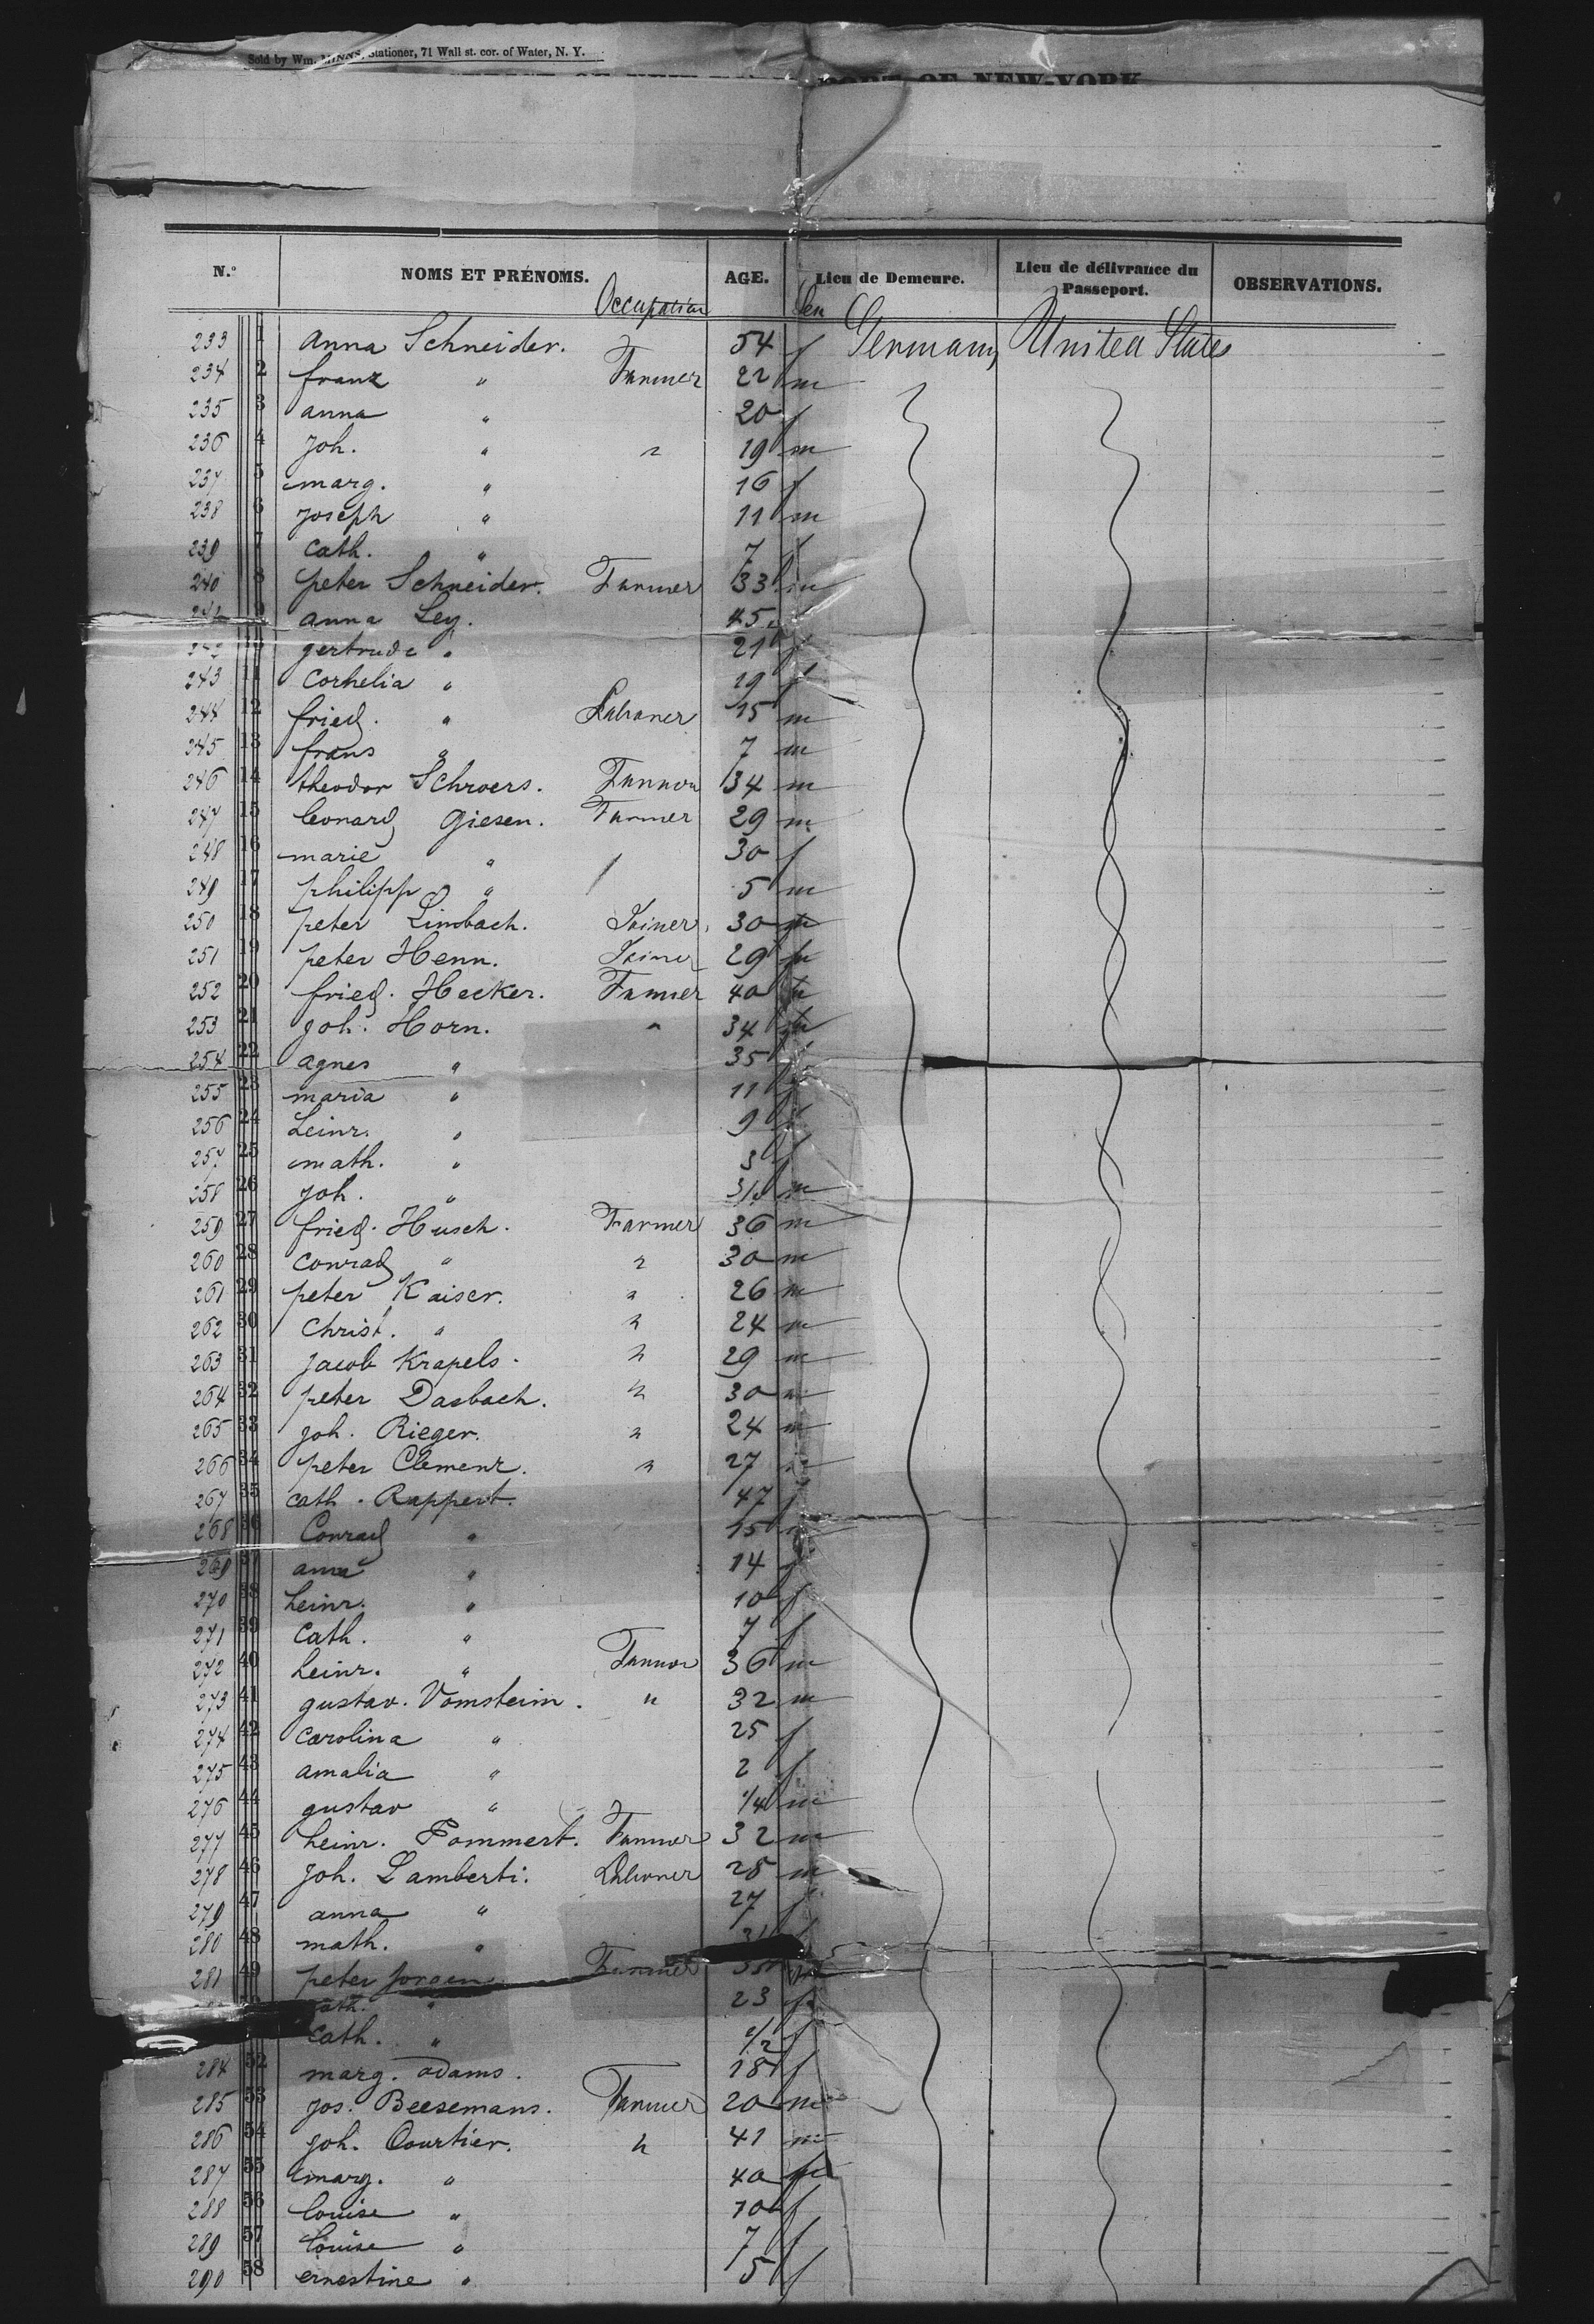 Sold by Wm. MINNS, Stationer, 71 Wall st. cor. of Water, N. Y.
PORT OF NEW-YORK
N.° NOMS ET PRÉNOMS. Occupation AGE. Sex Lieu de Demeure. Lieu de délivrance du Passeport. OBSERVATIONS.
233 1 anna Schneider. 54 f Germany United States
234 2 franz " Farmer 22 m
235 3 anna " 20 f
236 4 Joh. " " 19 m
237 5 marg. " 16 f
238 6 Joseph " 11 m
239 7 Cath. " 7 f
240 8 peter Schneider. Farmer 33 m
241 9 anna Ley. 45
242 10 gertrude " 21 f
243 11 Cornelia " 19 f
244 12 fried. " Labaner 15 m
245 13 frans " 7 m
246 14 theodor Schroers. Farmer 34 m
247 15 leonard Giesen. Farmer 29 m
248 16 marie " 30 f
249 17 philipp " 5 m
250 18 peter Limbach. Joiner. 30 m
251 19 peter Henn. Joiner 29 m
252 20 fried. Hecker. Farmer 40 m
253 21 Joh. Horn. " 34 m
254 22 agnes " 35 f
255 23 maria " 11 f
256 24 heinr. " 9 f
257 25 math. " 3 f
258 26 Joh. " m
259 27 fried. Husch. Farmer 36 m
260 28 Conrad " " 30 m
261 29 peter Kaiser. " 26 m
262 30 Christ. " " 24 m
263 31 Jacob Krapels. " 29 m
264 32 peter Dasbach. " 30 m
265 33 Joh. Rieger. " 24 m
266 34 peter Clemenz. " 27 m
267 35 cath. Rappert. 47 f
268 36 Conrad " 15 m
269 37 anna " 14 f
270 38 heinr. " 10 f
271 39 Cath. " 7 f
272 40 heinr. " Farmer 36 m
273 41 gustav. Vomsteim. " 32 m
274 42 Carolina " 25 f
275 43 amalia " 2 f
276 44 gustav " 1/4 m
277 45 heinr. Pommert. Farmer 32 m
278 46 Joh. Lamberti. 28 m
279 47 anna " 27 f
280 48 math. "
281 49 peter Jorgen Farmer
Cath. " 23 f
Cath. " 1/2 f
284 52 marg. adams. 18 f
285 53 Jos. Beesemans. Farmer 20 m
286 54 Joh. Courtier. " 41 m
287 55 marg. " 40 f
288 56 louise " 10 f
289 57 louise " 7 f
290 58 ernestine " 5 f